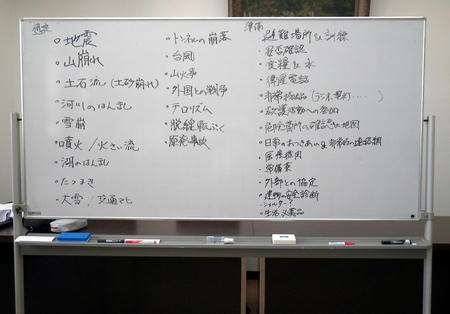 想定
・地震
・山崩れ
・土石流（土砂崩れ）
・河川のはんらん
・雪崩
・噴火／火さい流
・湖のはんらん
・たつまき
・大雪／交通マヒ
・トンネルの崩落
・台風
・山火事
・外国との戦争
・テロリズム
・脱線転ぷく
・原発事故
準備
・避難場所&訓練
・安否確認
・食糧&水
・衛星電話
・非常持出品（ラジオ、電灯……）
・救護活動への参加
・危険箇所の確認と地図
・日常のおつきあい&非常の連絡網
・医療費用
・常備薬
・外部との協定
・建物の安全診断
・シェルター
・生活必需品